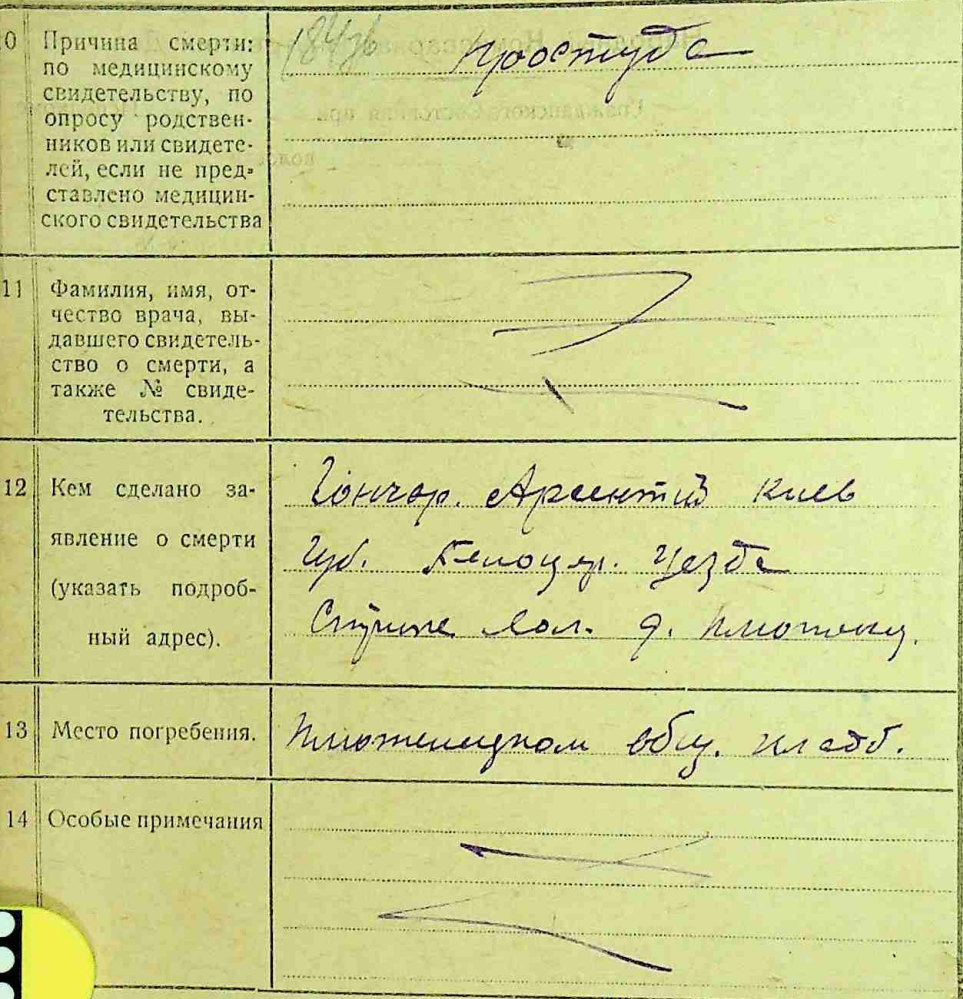 10 Причина смерти: 184зв Простуда
по медицинскому
свидетельству, по
опросу родствен-
ников или свидете-
лей, если не пред-
ставлено медицин-
ского свидетельства
11 Фамилия, имя, от-
чество врача, вы-
давшего свидетель-
ство о смерти, а
также № свиде-
тельства.
12 Кем сделано за-
явление о смерти
(указать подроб-
ный адрес).
Гончар. Арсентий Киев
Губ. Белоцер. Уезда
вол. д.
13 Место погребения.
общ. кладб.
14 Особые примечания